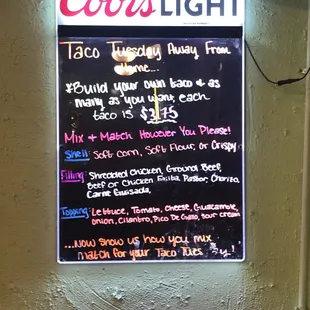 Coors LIGHT
Taco Tuesday Away From
Home...
*Build your own taco & as
many as you want, each
taco is $3.75
Mix + Match However You Please!
Shell: Soft Corn, Soft Flour, or Crispy
Filling: Shredded Chicken, Ground Beef,
Beef or Chicken Fajita, Pastor, Chorizo,
Carne Guisada,
Topping: Lettuce, Tomato, Cheese, Guacamole,
Onion, Cilantro, Pico De Gallo, Sour cream
...Now show us how you mix
match for your Taco Tues